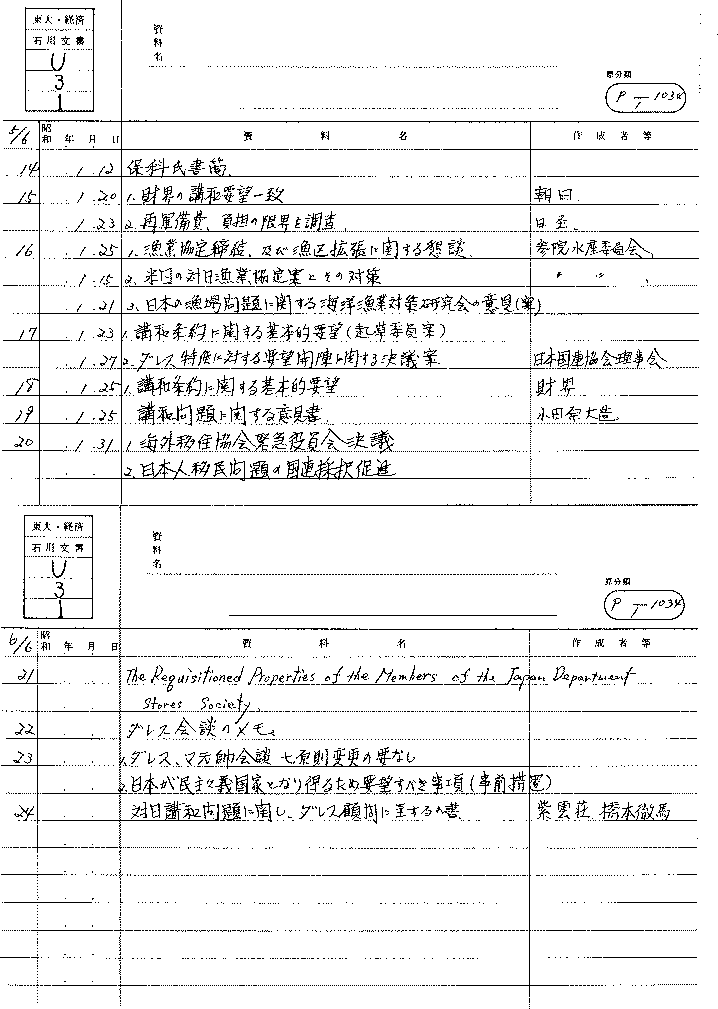 東大・経済
石川文書
U
3
1
資料名
原分類
P-T-1034
5/6 昭和 年 月 日 資料名 作成者等
14 1.12 保科氏書簡.
15 1.20 1.財界の講和要望一致 朝日
1.23 2.再軍備費、負担の限界を調査 日至
16 1.25 1.漁業協定締結、及び漁区拡張に関する懇談. 参院水産委員会
1.15 2.米国の対日漁業協定案とその対策 〃 〃
1.21 3.日本の漁場問題に関する海洋漁業対策研究会の意見(案)
17 1.23 1.講和条約に関する基本的要望(起草委員案)
1.27 2.ダレス特使に対する要望開陳に関する決議案 日本国連協会理事会
18 1.25 1.講和条約に関する基本的要望 財界
19 1.25 講和問題に関する意見書 小田原大造
20 1.31 1.海外移住協会緊急役員会決議
2.日本人移民問題の国連採択促進
東大・経済
石川文書
U
3
1
資料名
原分類
P-T-1034
6/6 昭和 年 月 日 資料名 作成者等
21 The Requisitioned Properties of the Members of the Japan Department
Stores Society.
22 ダレス会談のメモ
23 1.ダレス、マ元帥会談 七原則変更の要なし
2.日本が民主々義国家となり得るため要望すべき事項(事前措置)
24 対日講和問題に関し、ダレス顧問に呈するの書 紫雲荘 橋本徹馬